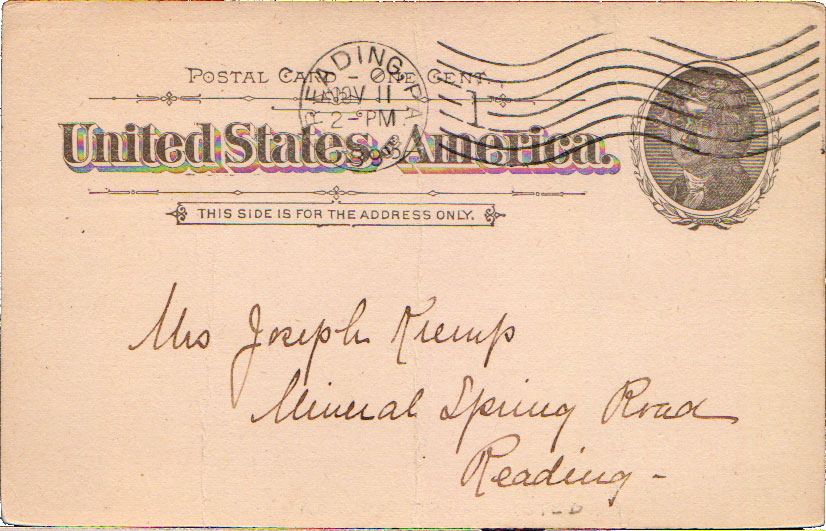 POSTAL CARD – ONE CENT.
United States America.
THIS SIDE IS FOR THE ADDRESS ONLY.
READING, PA
NOV 11
2-PM
1
Mrs Joseph Kremp
Mineral Spring Road
Reading –